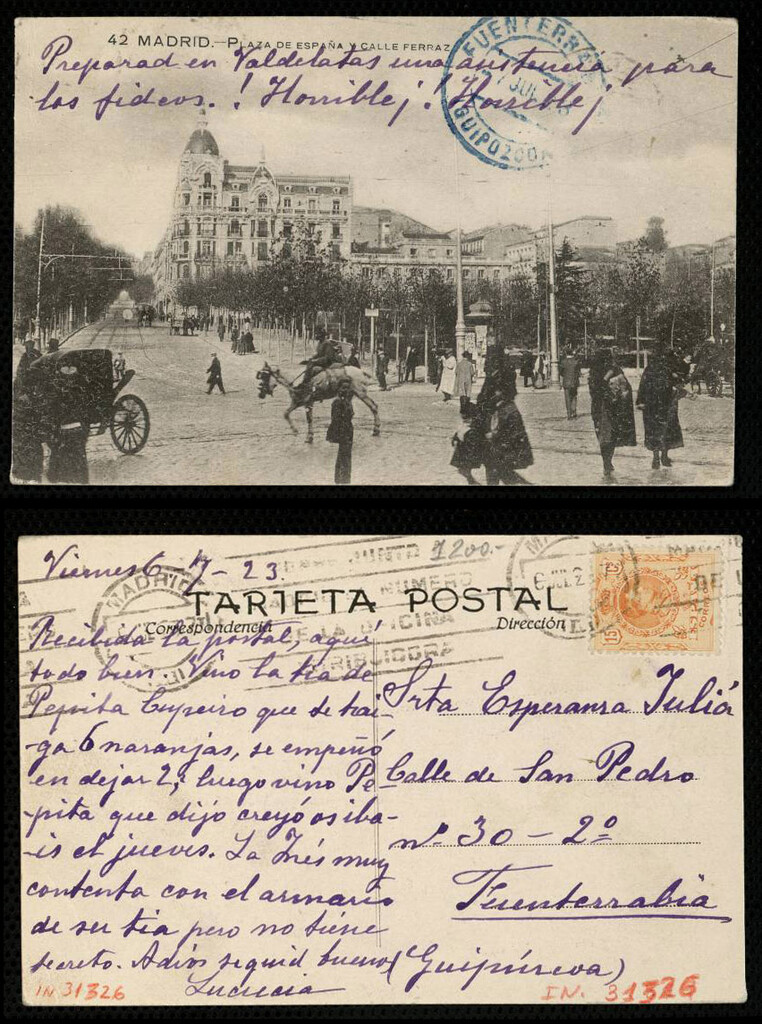 42 MADRID.-PLAZA DE ESPAÑA Y CALLE FERRAZ
Preparad en Valdelatas una asistencia para
los fideos. ! Horrible¡ ! Horrible¡
FUENTERRABIA
JUL
GUIPUZCOA
Viernes 6-7-23.
1200.-
JUNTO
NUMERO
DE LA OFICINA
DISTRIBUIDORA
MADRID
6 JUL 2
TARJETA POSTAL
Correspondencia
Dirección
15
15
CORREOS
Recibida la postal, aquí
todo bien. Vino la tía de
Pepita Cupeiro que os trai-
ga 6 naranjas, se empeñó
en dejar 2, luego vino Pe-
pita que dijo creyó os iba-
is el jueves. La Inés muy
contenta con el armario
de su tía pero no tiene
secreto. Adiós seguid buenos
Lucrecia
Srta Esperanza Juliá
Calle de San Pedro
nº 30 - 2º
Fuenterrabia
(Guipúzcoa)
IN 31326
IN. 31326